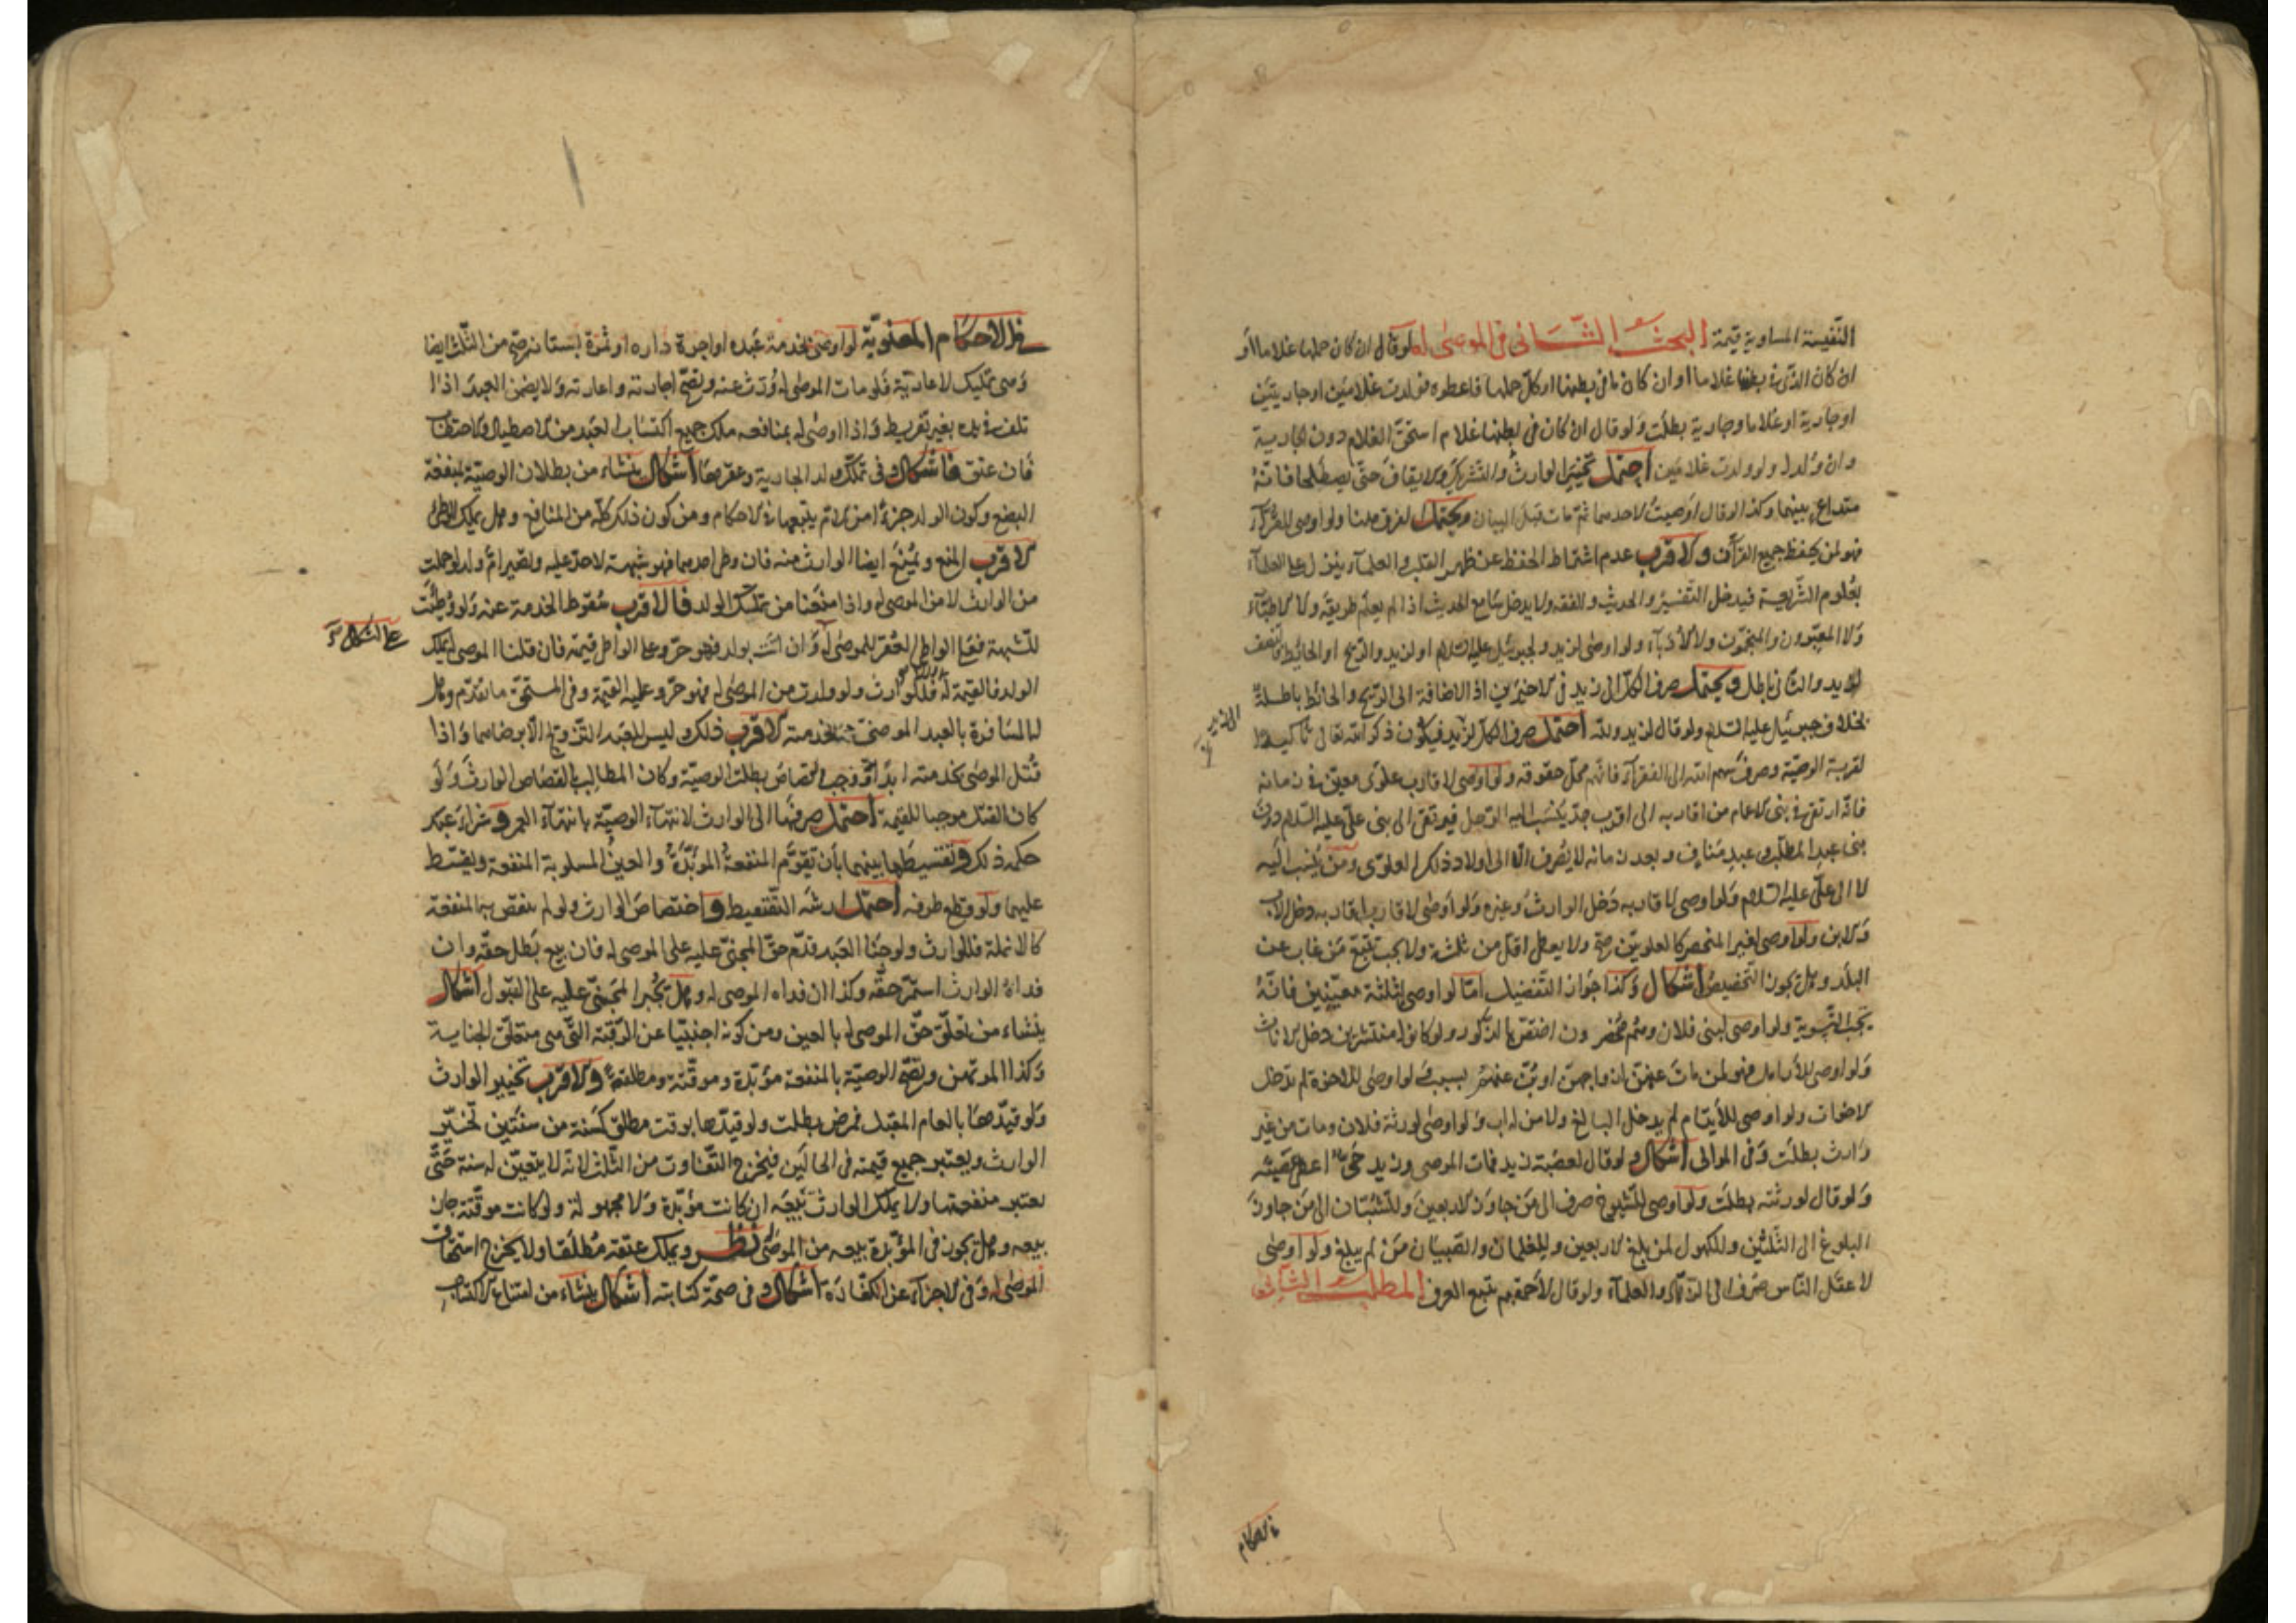 النفيسة المساوية قيمة البحث الثاني في الموصى له لو قال ان كان حملها غلاما او
ان كان الذي في بطنها غلاما او ان كان ما في بطنها او كل حملها فاعطوه فولدت غلامين او جاريتين
او جارية او غلاما وجارية بطلت ولو قال ان كان في بطنها غلام استحق الغلام دون الجارية
وان ولدا ولو ولدت غلامين احتمل تخيير الوارث والتشريك والايقاف حتى يصطلحا فانه
متداع بينهما وكذا لو قال اوصيت لاحدهما ثم مات قبل البيان ويحتمل الفرق هنا ولو اوصى للقرآء
فهو لمن يحفظ جميع القرآن والاقرب عدم اشتراط الحفظ عن ظهر القلب والعلمآء ينزل على العلمآء
بعلوم الشريعة فيدخل التفسير والحديث والفقه ولا يدخل سامع الحديث اذا لم يعلم طريقه ولا الاطبآء
ولا المعبرون والمنجمون ولا الادبآء ولو اوصى لزيد ولجبرئيل عليه السلام او لزيد والريح او الحائط فالنصف
لزيد والثاني باطل ويحتمل صرف الكل الى زيد في الاخيرين اذ الاضافة الى الريح والحائط باطلة
بخلاف جبرئيل عليه السلام ولو قال لزيد ولله احتمل صرف الكل لزيد فيكون ذكر الله تعالى تاكيدا
لقربة الوصية وصرف سهم الله الى الفقرآء فانهم محل حقوقه ولو اوصى لاقارب علوى معين في زمانه
فانه ارتقى في بنى الاعمام من اقاربه الى اقرب جد ينسب اليه الرجل فيرتقى الى بنى على عليه السلام دون
بنى عبد المطلب وعبد مناف وبعد زمانه لا يصرف الا الى اولاد ذلك العلوى ومن ينسب اليه
لا الى على عليه السلام ولو اوصى لاقاربه دخل الوارث وغيره ولو اوصى لاقارب اقاربه دخل الاب
والابن ولو اوصى لغير المنحصر كالعلويين صح ولا يعطى اقل من ثلثة ولا يجب تتبع من غاب عن
البلد وهل يجوز التخصيص اشكال وكذا جواز التفضيل اما لو اوصى لثلثة معينين فانه
يجب التسوية ولو اوصى لبنى فلان وهم منحصرون اختص بها الذكور ولو كانوا منتشرين دخل الاناث
ولو اوصى للارامل فهو لمن مات عنهن ازواجهن او بن عنهم بسبب ولو اوصى للاخوة لم تدخل
الاخوات ولو اوصى للايتام لم يدخل البالغ ولا من له اب ولو اوصى لورثة فلان ومات من غير
وارث بطلت وفي الموالى اشكال ولو قال لعصبة زيد فمات الموصى وزيد حى اعطى عصبته
ولو قال لورثته بطلت ولو اوصى للشيوخ صرف الى من جاوز الاربعين وللشبان الى من جاوز
البلوغ الى الثلثين وللكهول لمن بلغ الاربعين وللغلمان والصبيان من لم يبلغ ولو اوصى
لاعقل الناس صرف الى الزهاد والعلمآء ولو قال لاحمقهم تتبع العرف المطلب الثاني
في الاحكام
في الاحكام المعنوية لو اوصى بخدمة عبده او اجرة داره او ثمرة بستانه صح من الثلث ايضا
وهى تمليك لا عارية فلو مات الموصى له ورث عنه وتصح اجارته واعارته ولا يضمن العبد اذا
تلف في يده بغير تفريط واذا اوصى له بمنافعه ملك جميع اكتساب العبد من الاصطياد والاحتطاب
فان عتق فاشكال وفى تملك ولد الجارية وعقرها اشكال ينشاء من بطلان الوصية بمنفعة
البضع وكون الولد جزءا من الام يتبعها في الاحكام ومن كون ذلك كله من المنافع وهل يملك الوطئ
الاقرب المنع ويمنع ايضا الوارث منه فان وطئ احدهما فهو شبهة لا حد عليه وتصير ام ولد لو حملت
من الوارث لا من الموصى له واذا منعنا من تملك الولد فالاقرب سقوط الخدمة عنه ولو وطئت
للشبهة فعلى الواطئ العقر للموصى له وان اتت بولد فهو حر وعلى الواطئ قيمته فان قلنا الموصى له يملك
على اشكال
الولد فالقيمة له والا فللوارث ولو ولدت من الموصى له فهو حر وعليه القيمة وفى المستحق ما تقدم وهل
له المسافرة بالعبد الموصى بخدمته الاقرب ذلك وليس للعبد التزويج الا برضاهما واذا
قتل الموصى بخدمته ابدا فوجب القصاص بطلت الوصية وكان المطالب بالقصاص الوارث ولو
كان القتل موجبا للقيمة احتمل صرفها الى الوارث لانتهاء الوصية بانتهآء العمر وشراء عبد
حكمه ذلك وتقسيطها بينهما بان تقوم المنفعة المؤبدة والعين المسلوبة المنفعة ويقسط
عليهما ولو قطع طرفه احتمل ارشه التقسيط واختصاص الوارث ولو لم ينقص بها المنفعة
كالانملة فللوارث ولو جنا العبد قدم حق المجنى عليه على الموصى له فان بيع بطل حقه وان
فداه الوارث استمر حقه وكذا ان فداه الموصى له وهل يجبر المجنى عليه على القبول اشكال
ينشاء من تعلق حق الموصى له بالعين ومن كونه اجنبيا عن الرقبة التى هى متعلق الجناية
وكذا المرتهن وتصح الوصية بالمنفعة مؤبدة وموقتة ومطلقة والاقرب تخيير الوارث
ولو قيدها بالعام المقبل فمرض بطلت ولو قيدها بوقت مطلق كسنة من سنتين تخير
الوارث ويعتبر جميع قيمته في الحالين فيخرج التفاوت من الثلث لانه لا يتعين له سنة حتى
يعتبر منفعتها ولا يملك الوارث بيعه ان كانت مؤبدة ولا مجهولة ولو كانت موقتة جاز
بيعه وهل يجوز في المؤبدة بيعه من الموصى له نظر ويملك عتقه مطلقا ولا يخرج استحقاق
الموصى له وفى الاجزاء عن الكفارة اشكال وفى صحة كتابته اشكال ينشاء من امتناع الاكتساب